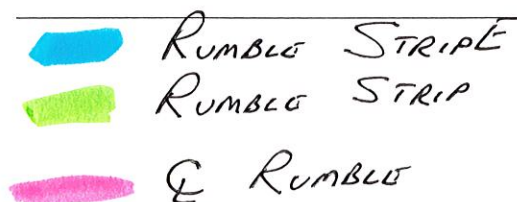 RUMBLE STRIPE
RUMBLE STRIP
℄ RUMBLE